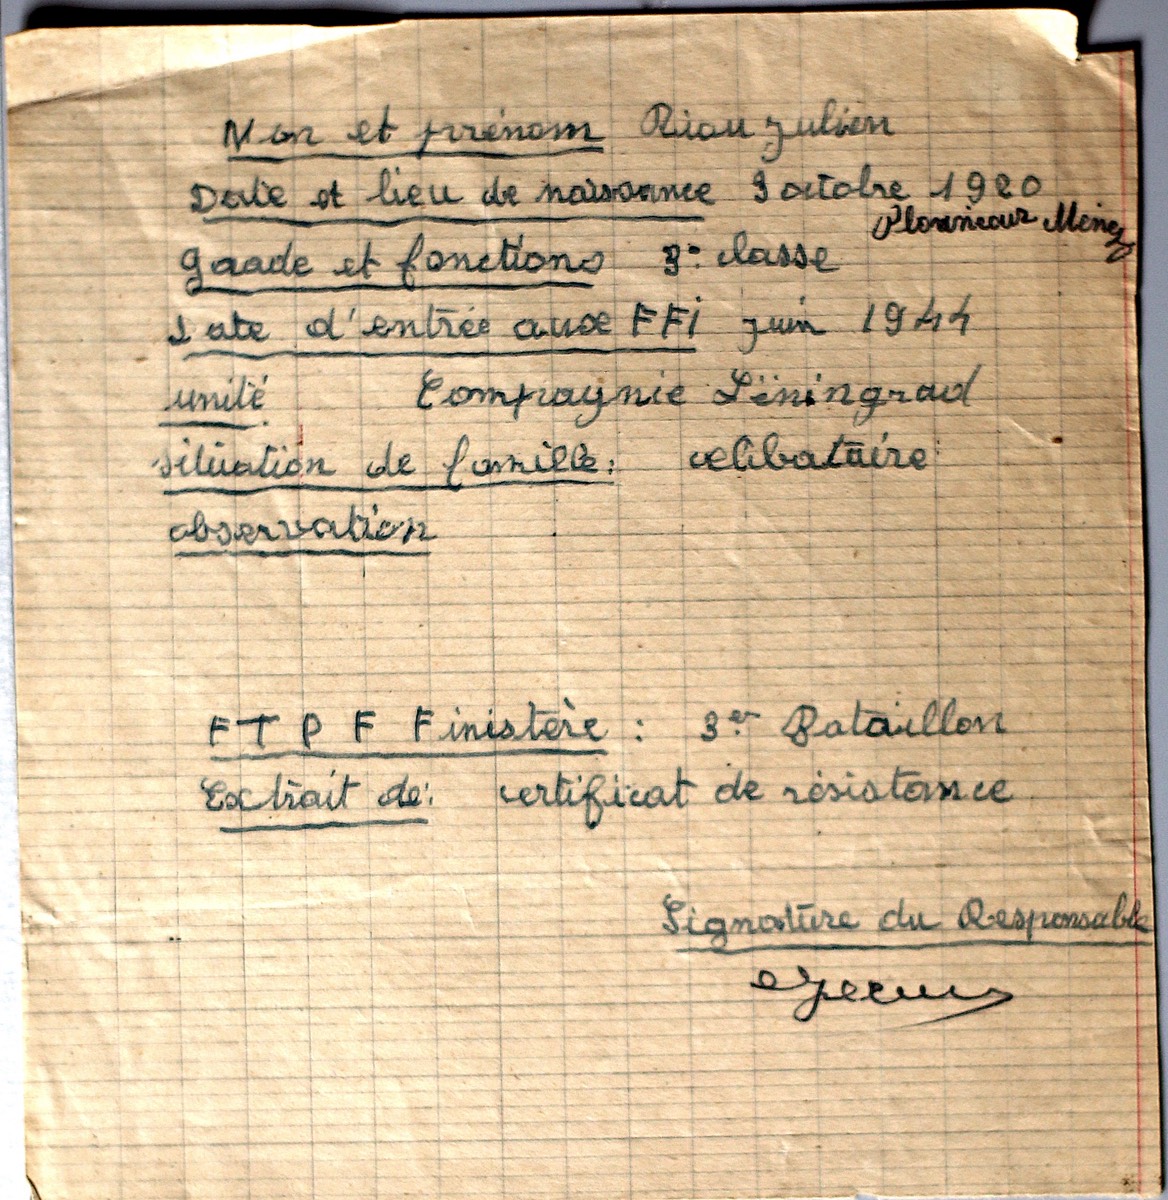 Non et prénom Riou Julien
Date et lieu de naissance 3 octobre 1920
Plounéour Ménez
grade et fonctions 3e classe
Date d'entrée aux FFI juin 1944
unité Compagnie Léningrad
situation de famille: celibataire
observation
F T P F Finistère : 3er Bataillon
Extrait de: certificat de résistance
Signature du Responsable